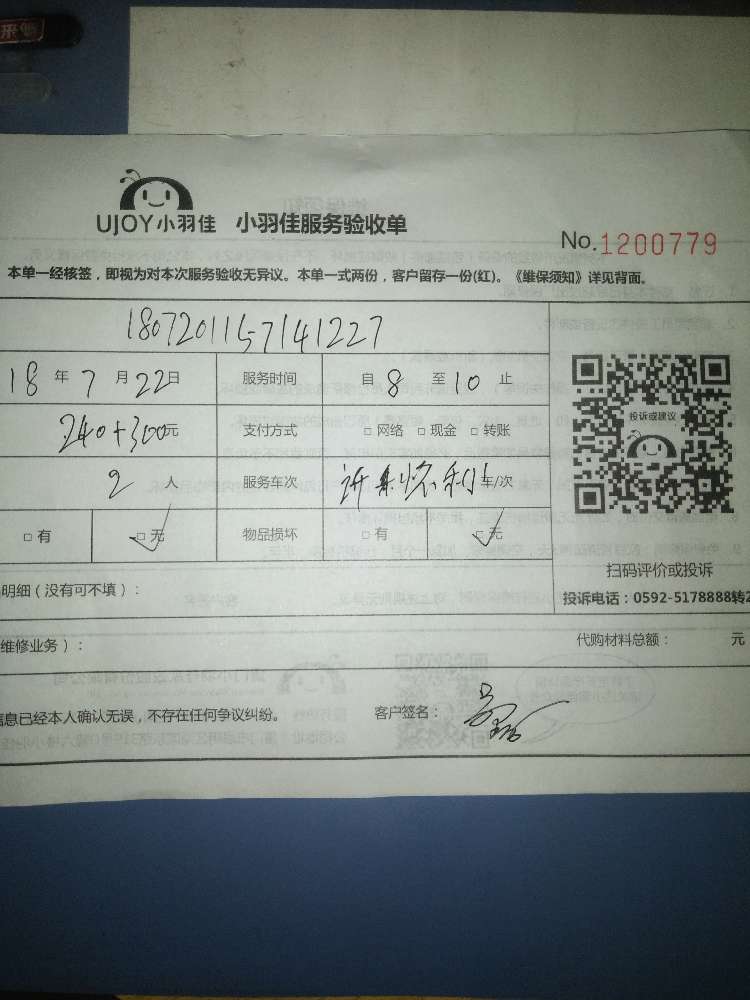 来电
UJOY小羽佳 小羽佳服务验收单
No.1200779
本单一经核签，即视为对本次服务验收无异议。本单一式两份，客户留存一份(红)。《维保须知》详见背面。
1807201157141227
18年7月22日 服务时间 自8至10止
240+300元 支付方式 □网络 □现金 □转账
投诉或建议
2人 服务车次 车/次
□有 □无 物品损坏 □有 □无
扫码评价或投诉
明细（没有可不填）：
投诉电话：0592-5178888转2
维修业务）：
代购材料总额： 元
信息已经本人确认无误，不存在任何争议纠纷。 客户签名：